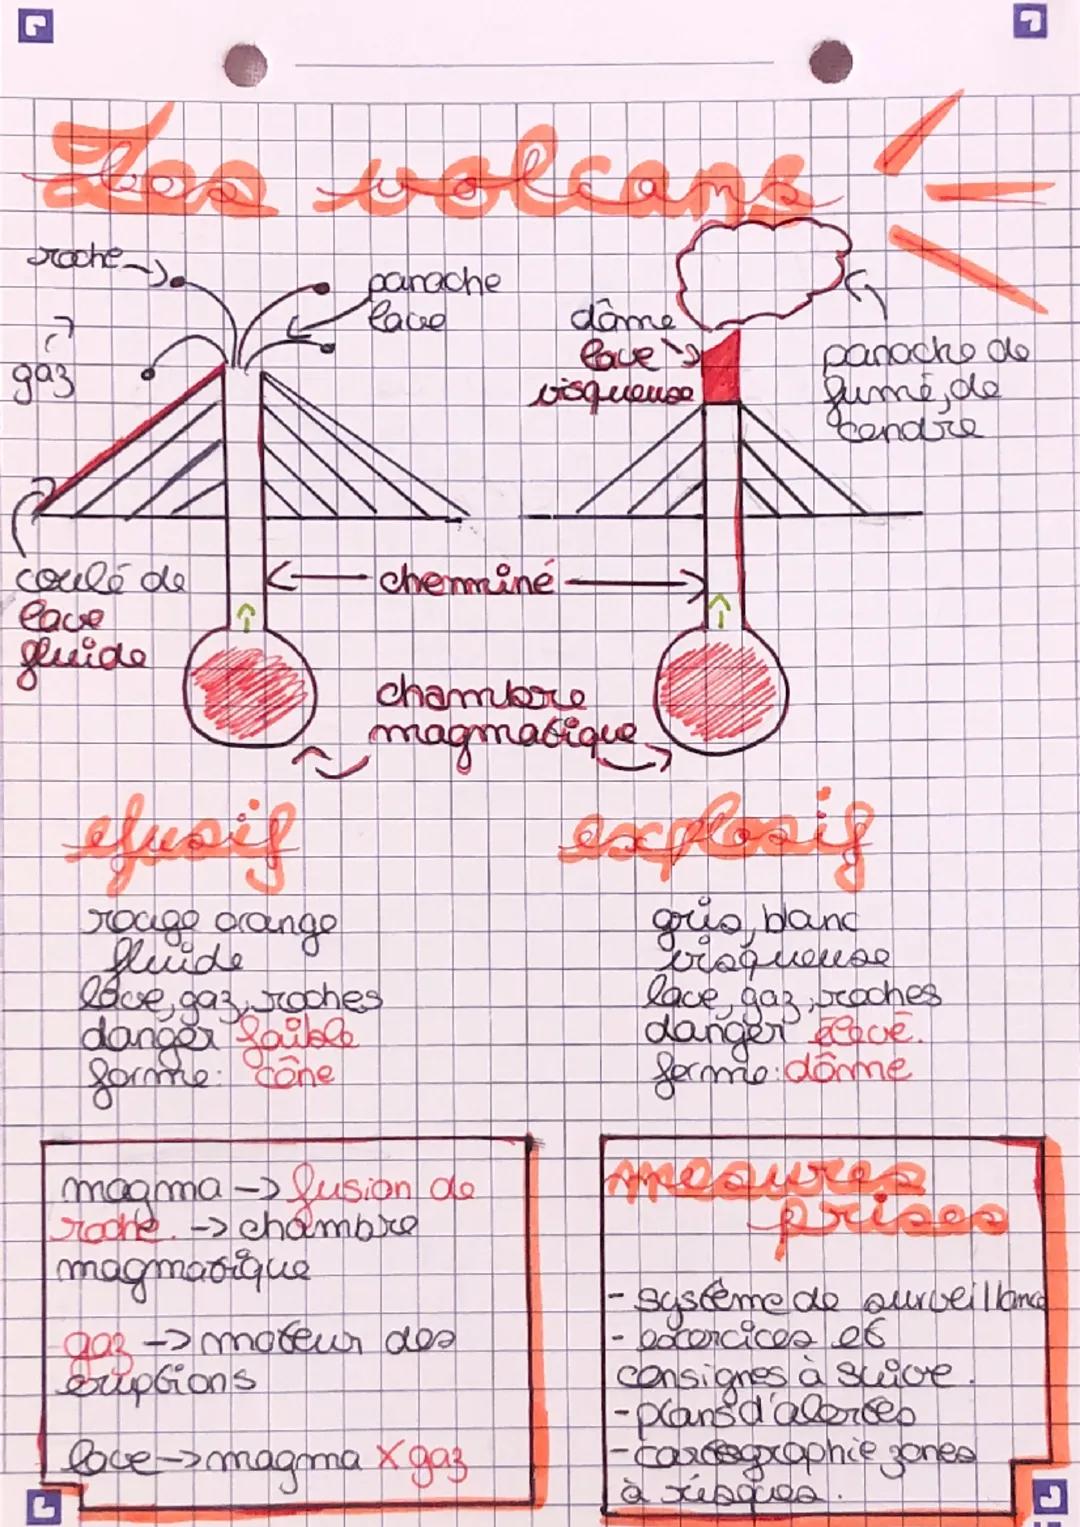 Les volcans
roche
gaz
panache
lave
dôme
lave
visqueuse
panache de
fumé, de
cendre
coulé de
lave
fluide
cheminé
chambre
magmatique
efusif
rouge orange
fluide
lave, gaz, roches
danger faible
forme: cône
explosif
gris, blanc
visqueuse
lave, gaz, roches
danger élevé.
forme: dôme
magma -> fusion de
roche. -> chambre
magmatique
gaz -> moteur des
éruptions
lave -> magma X gaz
mesures
prises
- système de surveillance
- exercices et
consignes à suivre.
- plans d'alertes
- cartographie zones
à risques.